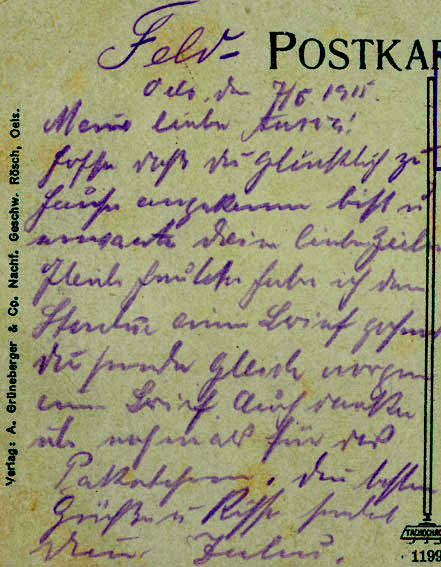 Feld-
POSTKAR
Oels, den 7/6 1915.
Meine liebe
Hoffe daß du glücklich zu
Hause angekommen bist u
erwarte Deine lieben Zeilen
Gleich habe ich dem
einen Brief
Du sende gleich morgen
einen Brief. Auch danke
ich nochmals für das
Paketchen. Die besten
Grüße u Küsse sendet
Dein
Verlag: A. Grüneberger & Co. Nachf. Geschw. Rösch, Oels.
1199